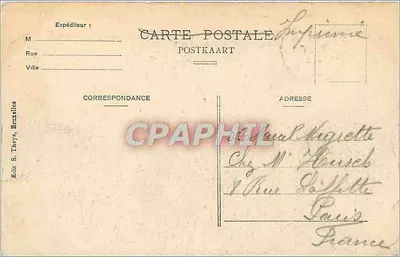 Expéditeur :
M
Rue
Ville
CARTE POSTALE
POSTKAART
Imprimé
CORRESPONDANCE
ADRESSE
Edit S. Theys, Bruxelles
CPAPHIL
Paul Negrette
Chez Mr Heusch
8 Rue Laffitte
Paris
France